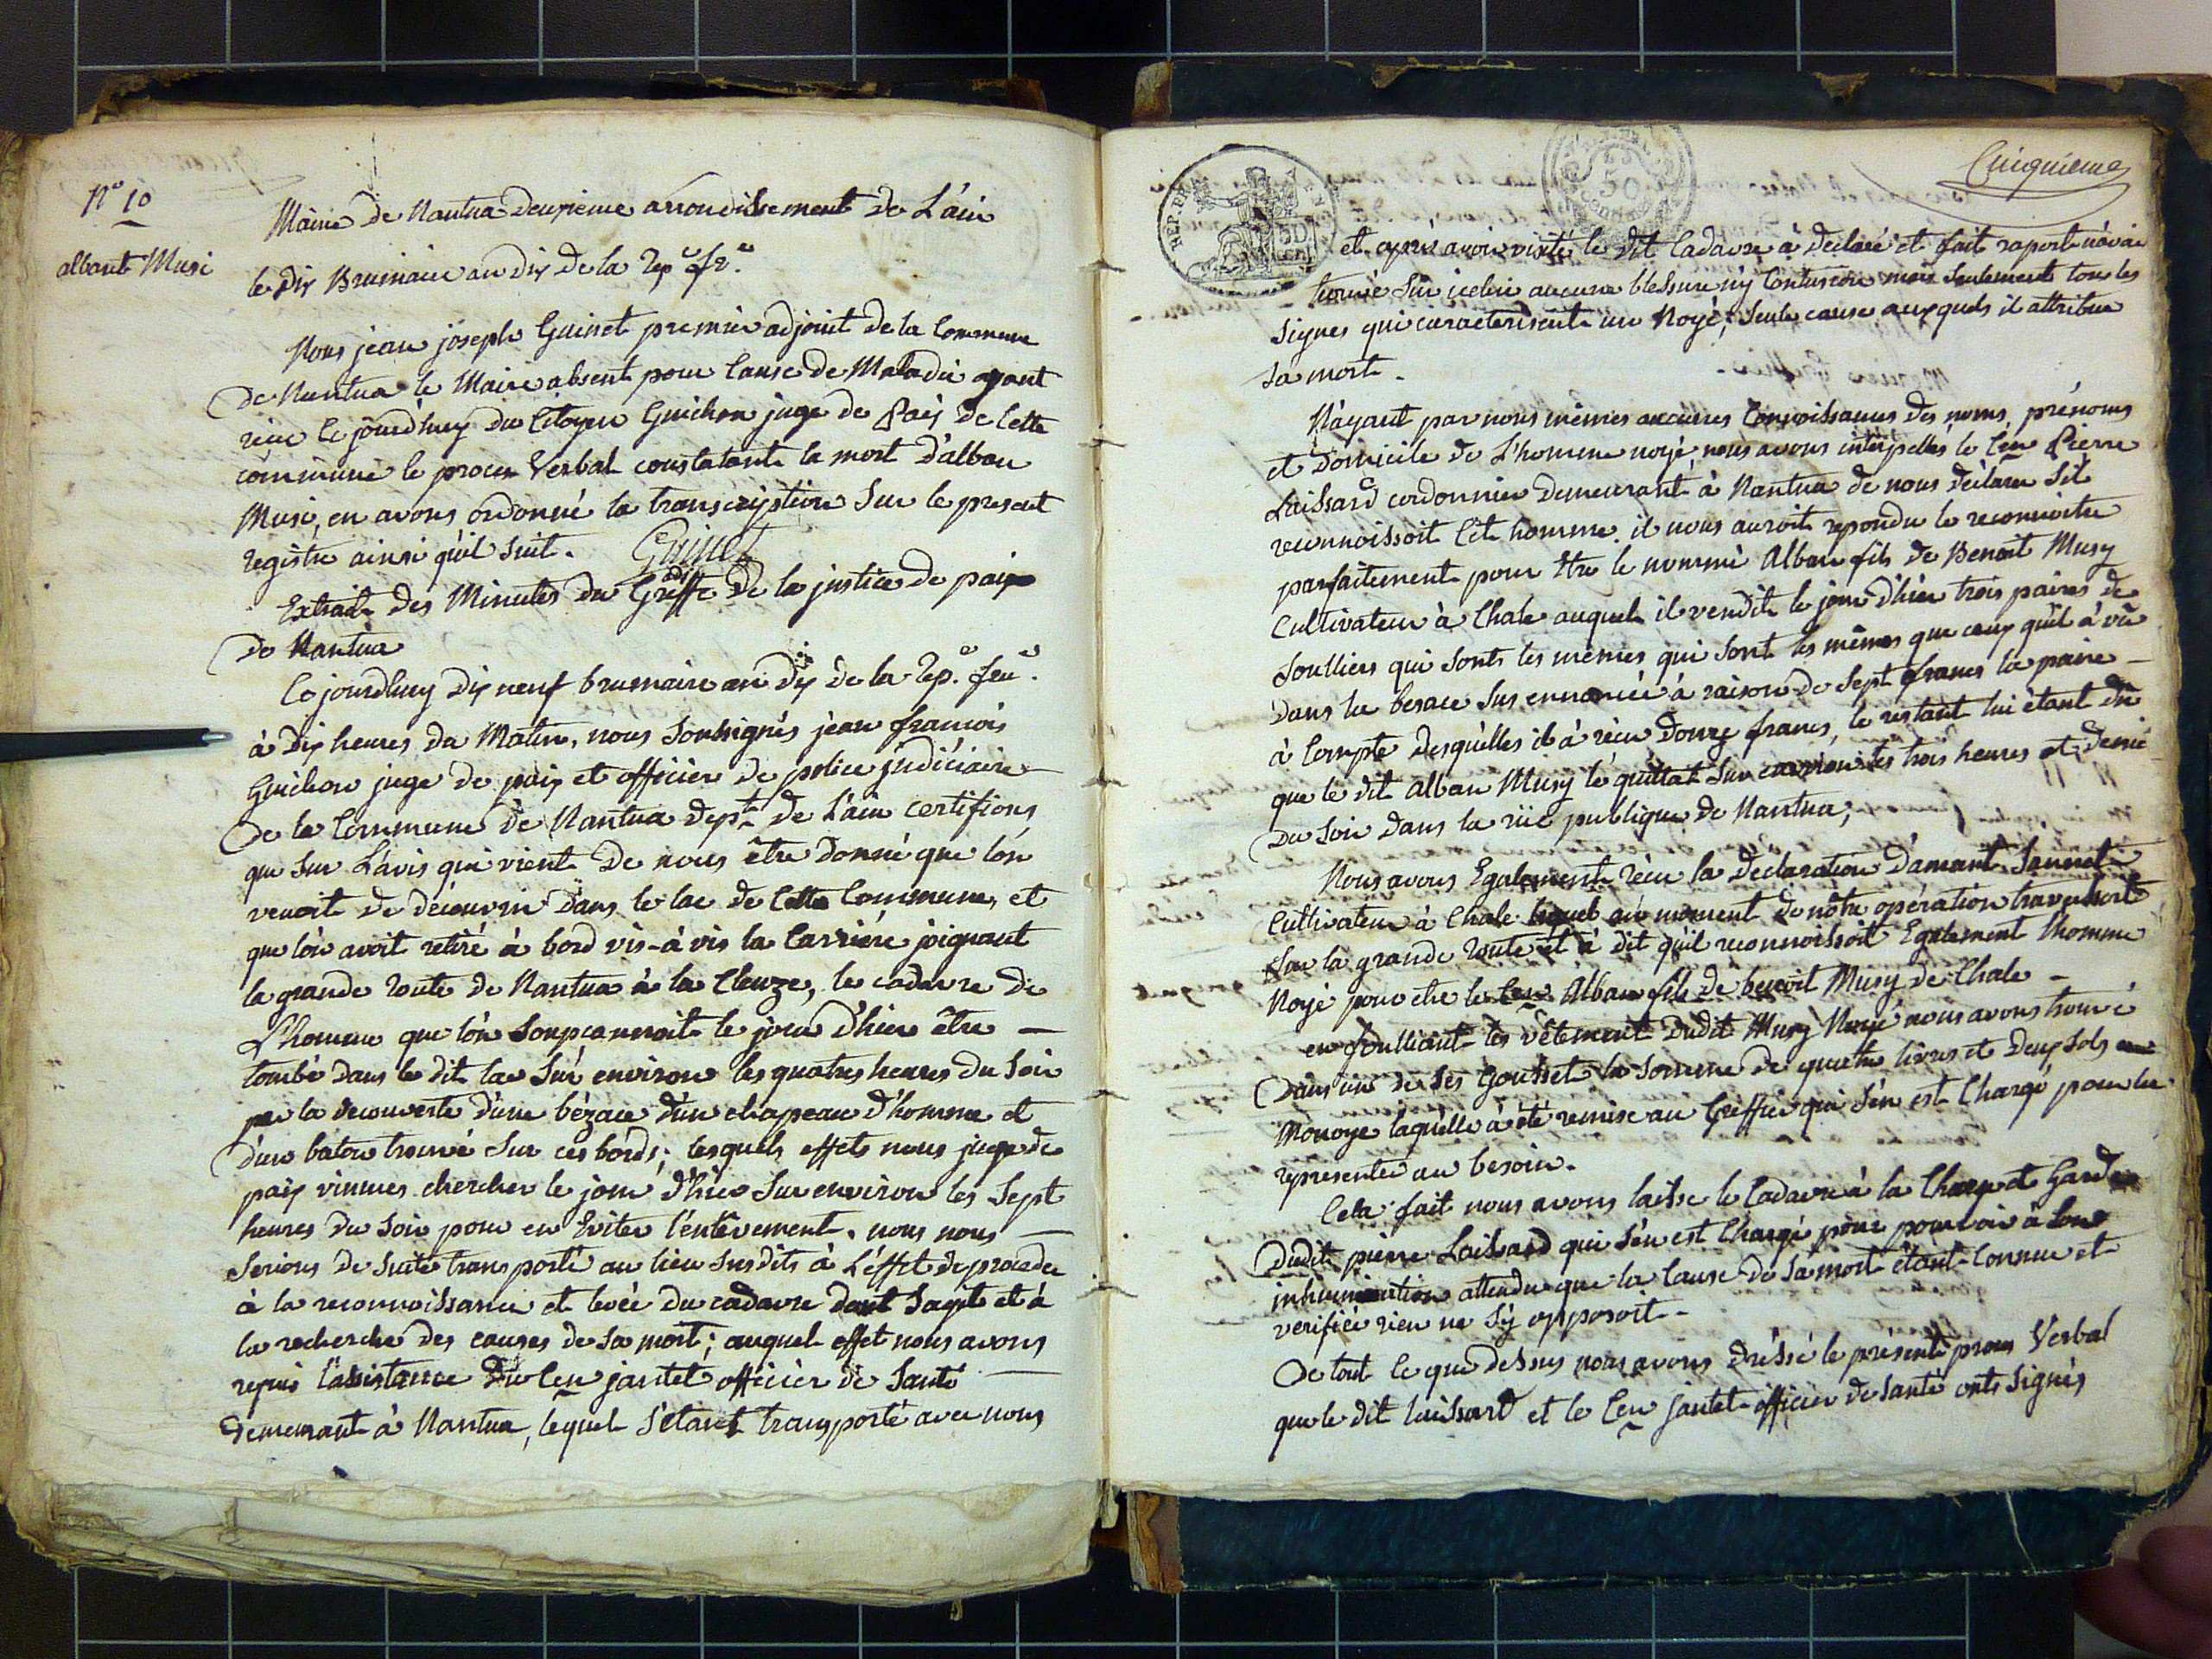 N° 10
albant Musi
Mairie de Nantua deuxieme arrondissement de L'ain
le dix Brumaire an dix de la Rep.e fr.e
Nous jean joseph Guinet premier adjoint de la Commune
de Nantua le Maire absent pour Cause de Maladie ayant
réçu Ce jourd'huy du Citoyen Guichon juge de Paix de Cette
commune le procès Verbal constatant la mort d'alban
Musi, en avons ordonné la transcription Sur le present
registre ainsi qu'il Suit. Guinet
Extrait des Minutes du Greffe de la justice de paix
de Nantua
Cejourdhuy dix neuf brumaire an dix de la Rep.e
à dix heures du Matin, nous Soussignés jean francois
Guichon juge de paix et officier de police judiciaire
De la Commune de Nantua dept. de L'ain certifions
que sur L'avis qui vient de nous être donné que l'on
venoit de découvrir dans le lac de Cette Commune, et
que l'on avoit retiré à bord vis-à vis la Carriére joignant
la grande route de Nantua à la Cleuze, le cadavre de
L'homme que l'on Soupçannoit le jour d'hier être
tombé dans le dit lac Sur environ les quatres heures du Soir
par la decouverte d'une bézace d'un chapeau d'homme et
d'un baton trouvé Sur ces bords; lesquels effets nous juge de
paix vinmes chercher le jour d'hier Sur environ les Sept
heures du Soir pour en Eviter l'enlêvement. nous nous
Serions de Suite transporté au lieu Susdits à L'éffet de proceder
à la reconnoissance et levée du cadavre dont Sagit et à
la recherche des causes de Sa mort; auquel effet nous avons
repris l'assistance Du Cen jantet officier de Santé
demeurant à Nantua, lequel S'étant transporté avec nous
REP. FR.
50
Cinquieme
et après avoir visité le dit Cadavre à déclaré et fait raport n'avoir
trouvé Sur icelui aucune blessure ny Contusion mais Seulement tous les
Signes qui caracterisent un Noyé; Seule cause auxquels il attribue
Sa mort.
N'ayant par nous mêmes aucunes Connoissances des noms, prénoms
et Domicile de L'homme noyé nous avons interpellés le Cen Pierre
Laissard cordonnier demeurant à Nantua de nous déclarer Sil
reconnoissoit Cet homme. il nous auroit repondu le reconnoitre
parfaitement pour Etre le nommé Alban fils de Benoit Musy
Cultivateur à Chale auquel il vendit le jour d'hier trois paires de
Soulliers qui Sonts les mêmes qui Sont les mêmes que ceux qu'il à vû
dans la besace Sus ennoncée à raison de Sept francs la paire
à Compte desquelles il à réçu Douze francs, le restant lui étant dû
que le dit alban Musy le quittat Sur environ les trois heures et demie
Du Soir dans la rüe publique de Nantua;
Nous avons Egalement réçu la declaration d'amant
Cultivateur à Chale lequel au moment de nôtre opération traversant
Sur la grande route et à dit qu'il reconnoissoit Egalement l'homme
Noyé pour etre le Cen Alban fils de benoit Musy de Chale
en foulliant les vêtement dudit Musy Noyé nous avons trouvé
Dans un de Ses Gousset la Somme de quatre livres et Deux Sols en
Monoye laquelle à été remise au Greffier qui S'en est Chargé pour la
representer au besoin.
Cela fait nous avons laisse le Cadavre à la Charge et Garde
Dudit pierre Laissard qui S'en est Chargé pour pourvoir à Son
inhumation attendu que la Cause de Sa mort étant Connue et
verifiée rien ne S'y opposoit.
De tout Ce que dessus nous avons dréssé le présent proces Verbal
que le dit laissard et le Cen jantet officier de Santé onts Signés